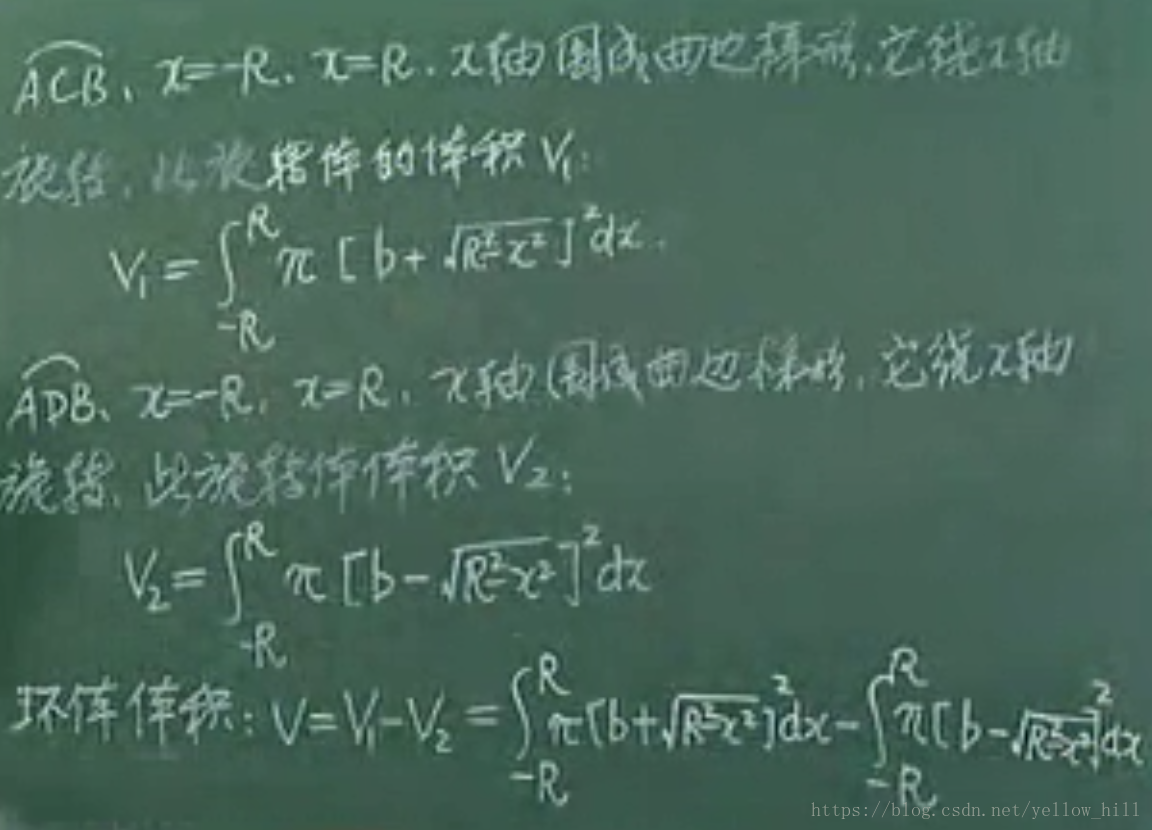 ⌒ACB、x=-R、x=R、x轴围成曲边梯形,它绕x轴
旋转,此旋转体的体积V₁:
V₁=∫_{-R}^{R} π[b+√(R²-x²)]²dx.
⌒ADB、x=-R、x=R、x轴围成曲边梯形,它绕x轴
旋转,此旋转体体积V₂:
V₂=∫_{-R}^{R} π[b-√(R²-x²)]²dx
环体体积:V=V₁-V₂=∫_{-R}^{R} π[b+√(R²-x²)]²dx-∫_{-R}^{R} π[b-√(R²-x²)]²dx
https://blog.csdn.net/yellow_hill